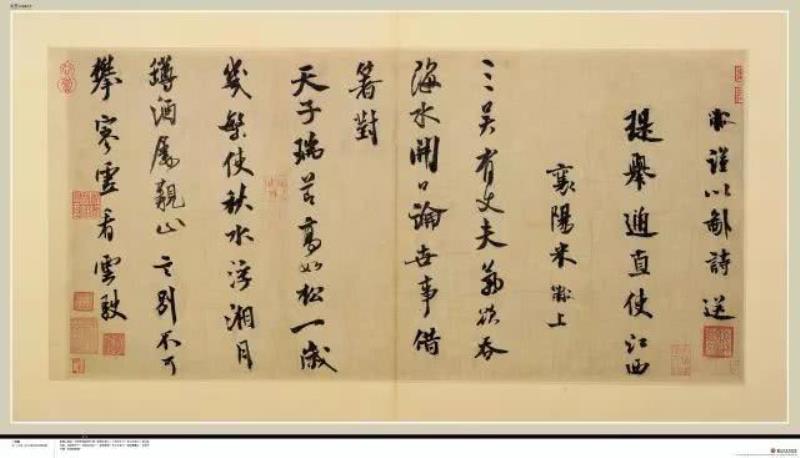 黻謹以鄙詩送
提舉通直使江西
襄陽米黻上
三吳有丈夫氣欲吞
海水開口論世事借
箸對
天子瑞節高如松一歲
幾繁使秋水浮湘月
罇酒屬言別不可
攀寥雲看雲駛